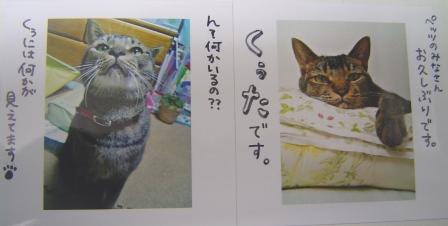 ペッツのみなさん
お久しぶりです。
くぅたです。
ん?何かいるの??
くぅには何が
見えてます